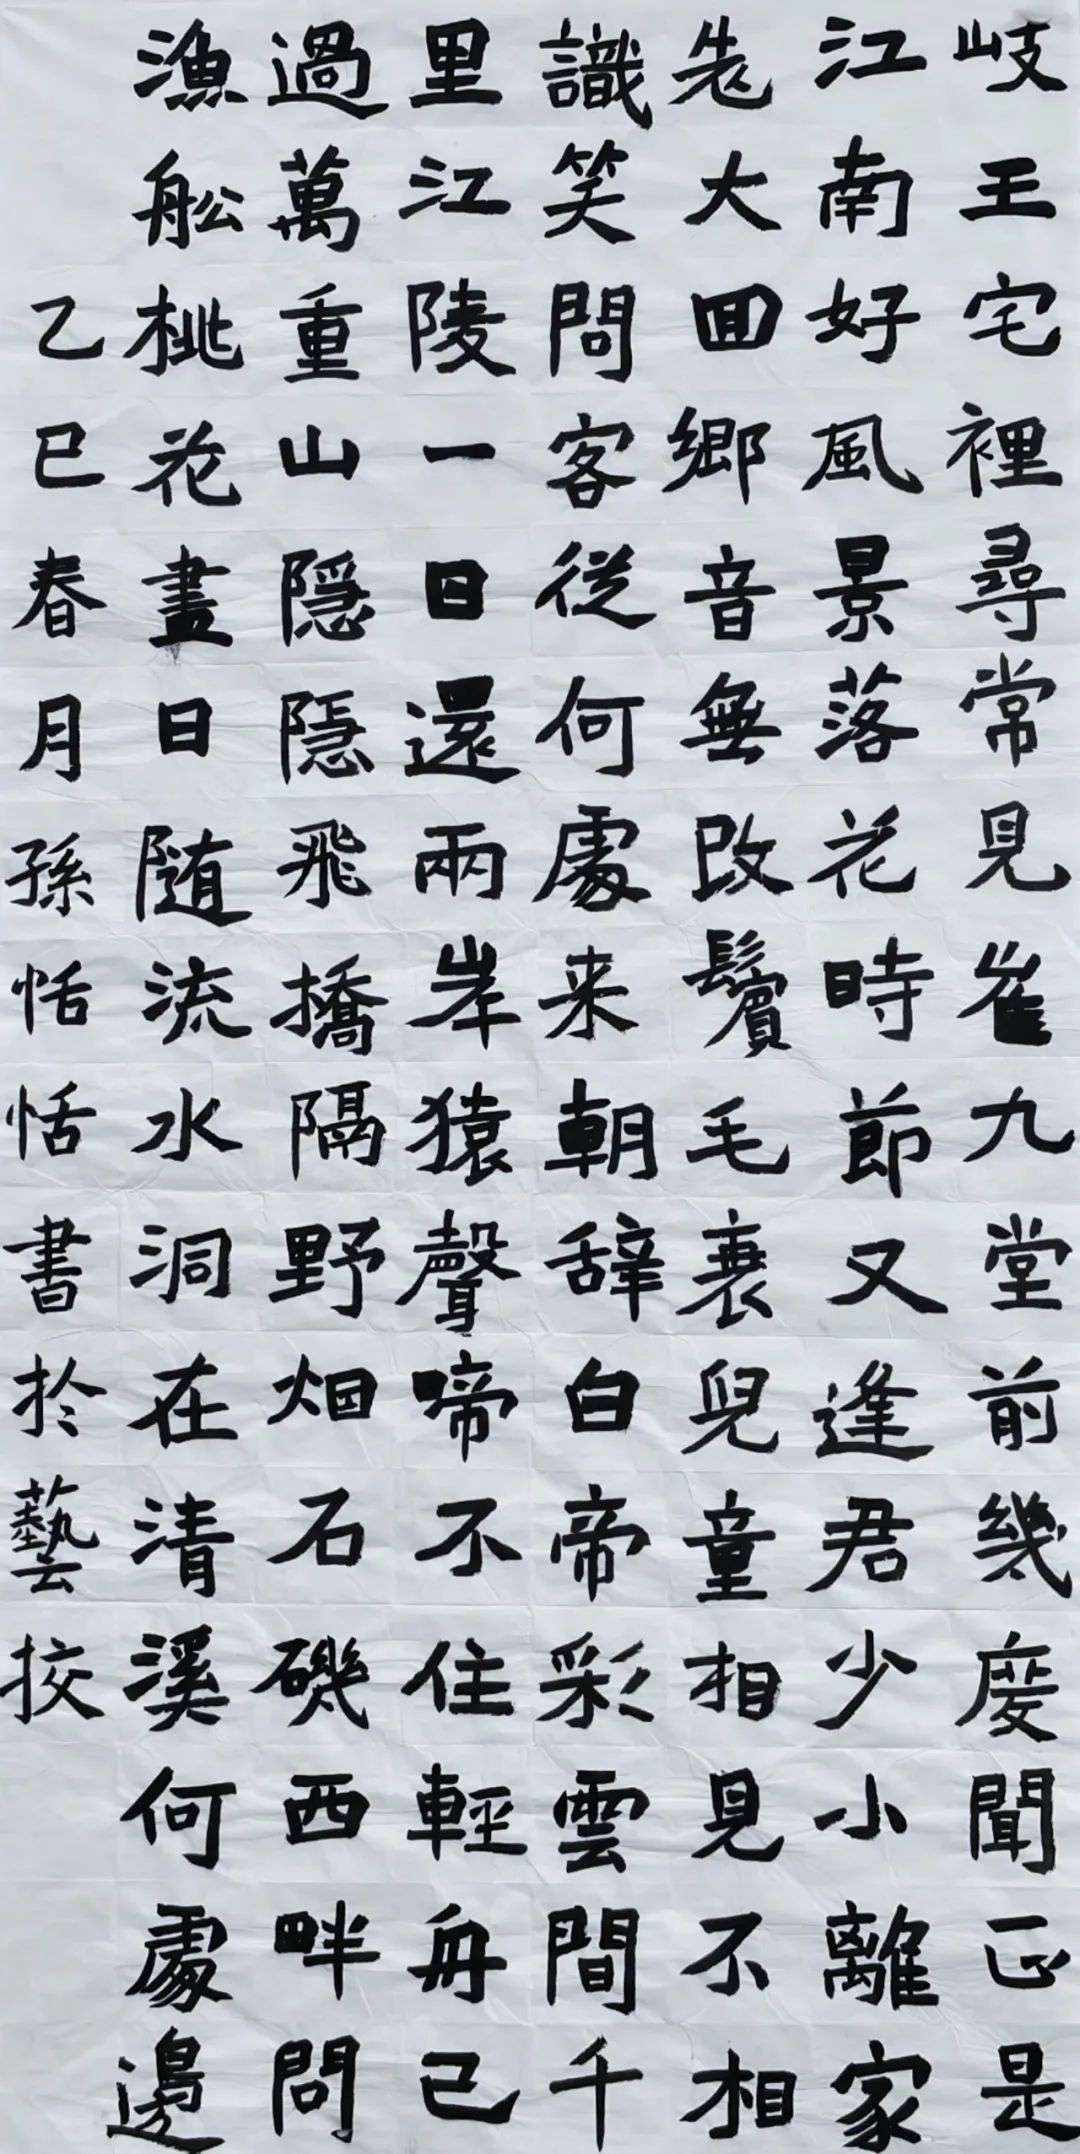 岐王宅裡尋常見崔九堂前幾度聞正是
江南好風景落花時節又逢君少小離家
老大回鄉音無改鬢毛衰兒童相見不相
識笑問客從何處来朝辞白帝彩雲間千
里江陵一日還兩岸猿聲啼不住輕舟已
過萬重山隱隱飛橋隔野烟石磯西畔問
漁舩桃花盡日随流水洞在清溪何處邊
乙巳春月孫恬恬書於藝挍